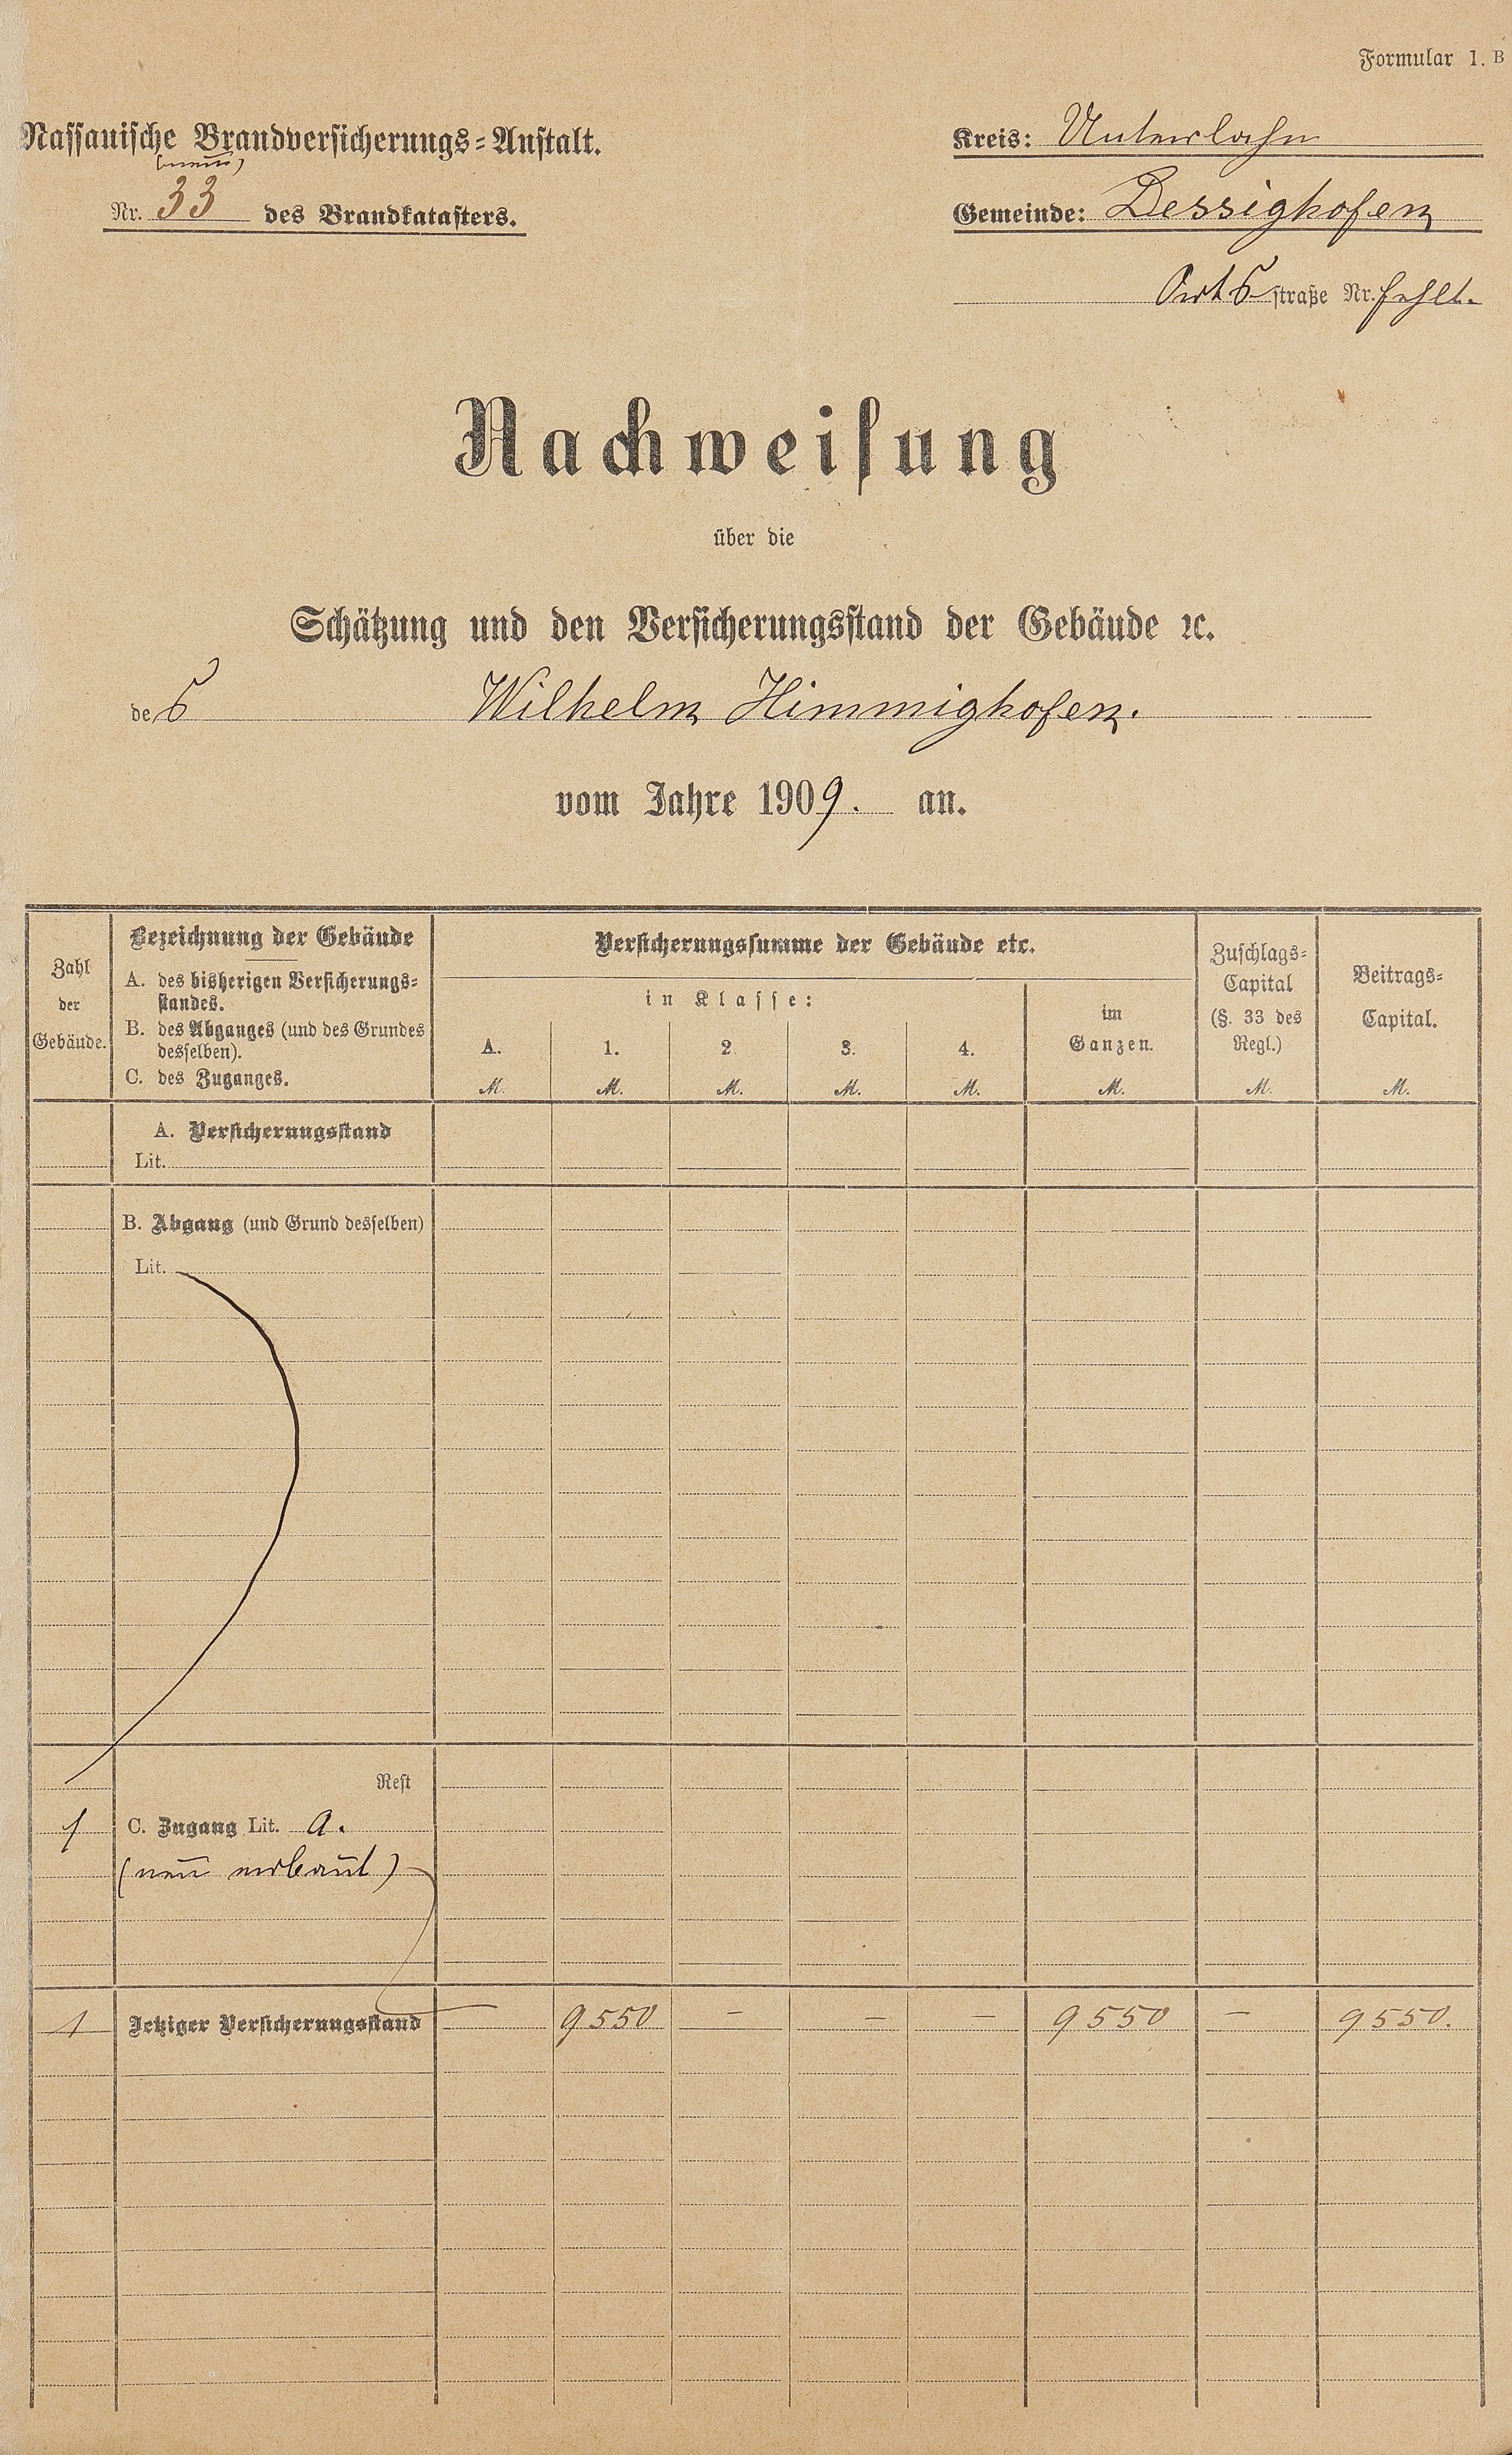 Formular 1. B
Nassauische Brandversicherungs=Anstalt.
(neue)
Nr. 33 des Brandkatasters.
Kreis: Unterlahn
Gemeinde: Dessighofen
Orts straße Nr. fehlt.
Nachweisung
über die
Schätzung und den Versicherungsstand der Gebäude ꝛc.
des Wilhelm Himmighofen.
vom Jahre 1909. an.
Zahl der Gebäude.
Bezeichnung der Gebäude
A. des bisherigen Versicherungs=
standes.
B. des Abganges (und des Grundes
desselben).
C. des Zuganges.
Versicherungssumme der Gebäude etc.
in Klasse:
A. 1. 2 3. 4.
im
Ganzen.
Zuschlags=
Capital
(§. 33 des
Regl.)
Beitrags=
Capital.
M. M. M. M. M. M. M. M.
A. Versicherungsstand
Lit.
B. Abgang (und Grund desselben)
Lit.
Rest
1 C. Zugang Lit. a.
(neu erbaut)
1 Jetziger Versicherungsstand — 9550 — — — 9550 — 9550.